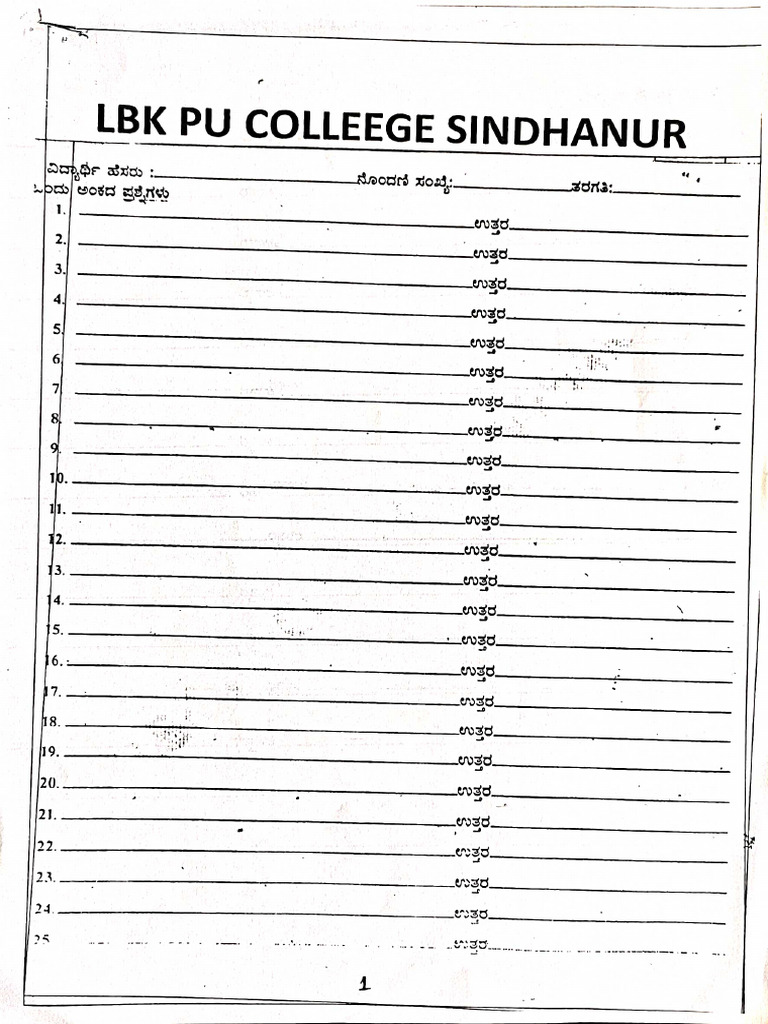 LBK PU COLLEEGE SINDHANUR
ವಿದ್ಯಾರ್ಥಿ ಹೆಸರು : ನೊಂದಣಿ ಸಂಖ್ಯೆ: ತರಗತಿ:
ಒಂದು ಅಂಕದ ಪ್ರಶ್ನೆಗಳು
1. ಉತ್ತರ
2. ಉತ್ತರ
3. ಉತ್ತರ
4. ಉತ್ತರ
5. ಉತ್ತರ
6. ಉತ್ತರ
7. ಉತ್ತರ
8. ಉತ್ತರ
9. ಉತ್ತರ
10. ಉತ್ತರ
11. ಉತ್ತರ
12. ಉತ್ತರ
13. ಉತ್ತರ
14. ಉತ್ತರ
15. ಉತ್ತರ
16. ಉತ್ತರ
17. ಉತ್ತರ
18. ಉತ್ತರ
19. ಉತ್ತರ
20. ಉತ್ತರ
21. ಉತ್ತರ
22. ಉತ್ತರ
23. ಉತ್ತರ
24. ಉತ್ತರ
25 ಉತ್ತರ
1